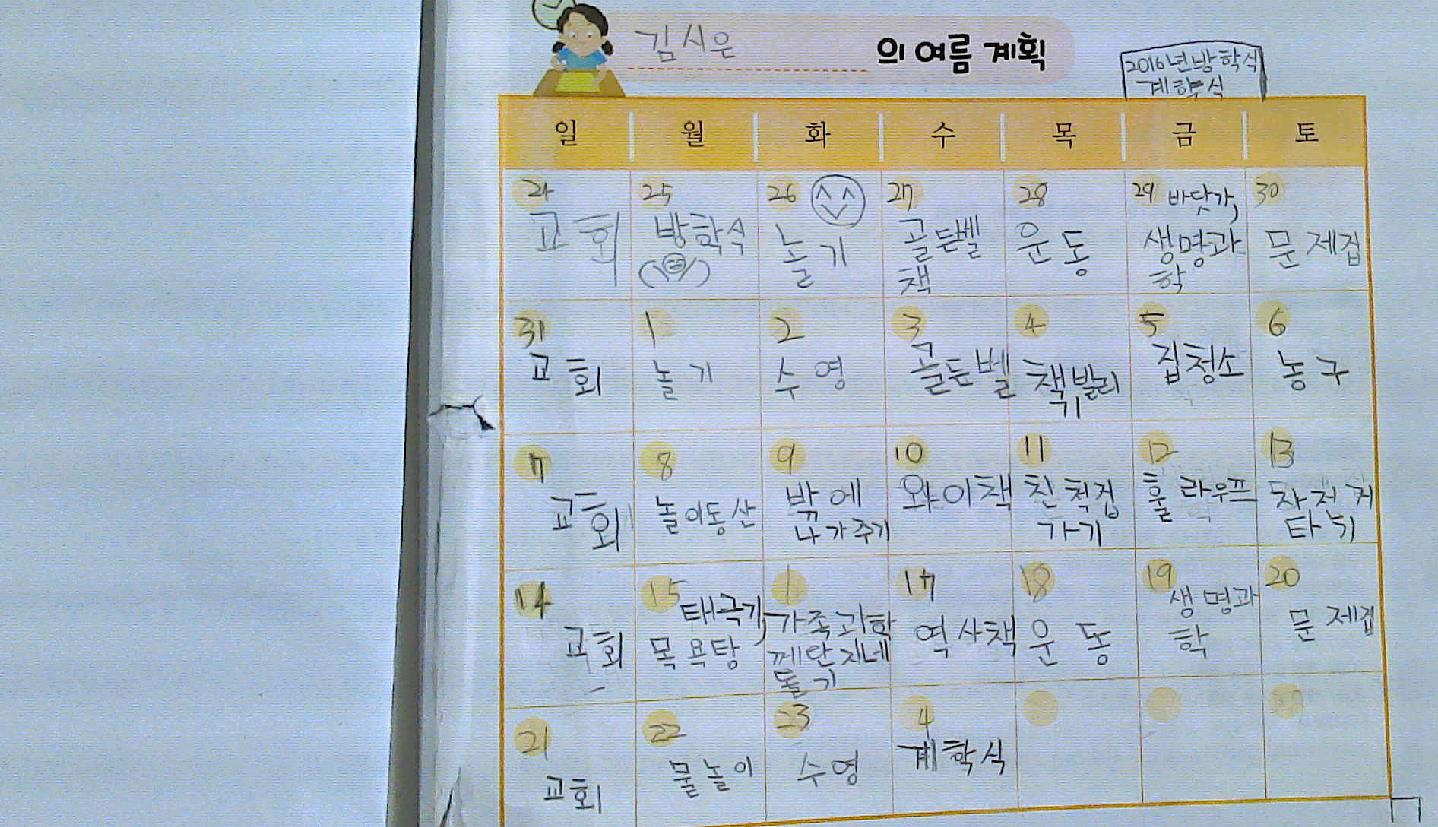 김시은 의 여름 계획
2016년방학식
계학식
일 월 화 수 목 금 토
24 25 26 27 28 29 바닷가, 30
교회 방학식 놀기 골든벨 운동 생명과 문제집
책 학
31 1 2 3 4 5 6
교회 놀기 수영 골든벨 책빌리 집청소 농구
기
7 8 9 10 11 12 13
교회 놀이동산 밖에 와이책 친척집 훌라우프 자전거
나가주기 가기 타기
14 15 태극기, 1 17 18 19 20
교회 목욕탕 가족과학 역사책 운동 생명과 문제집
지네 학
놀기
21 22 23 4
교회 물놀이 수영 계학식